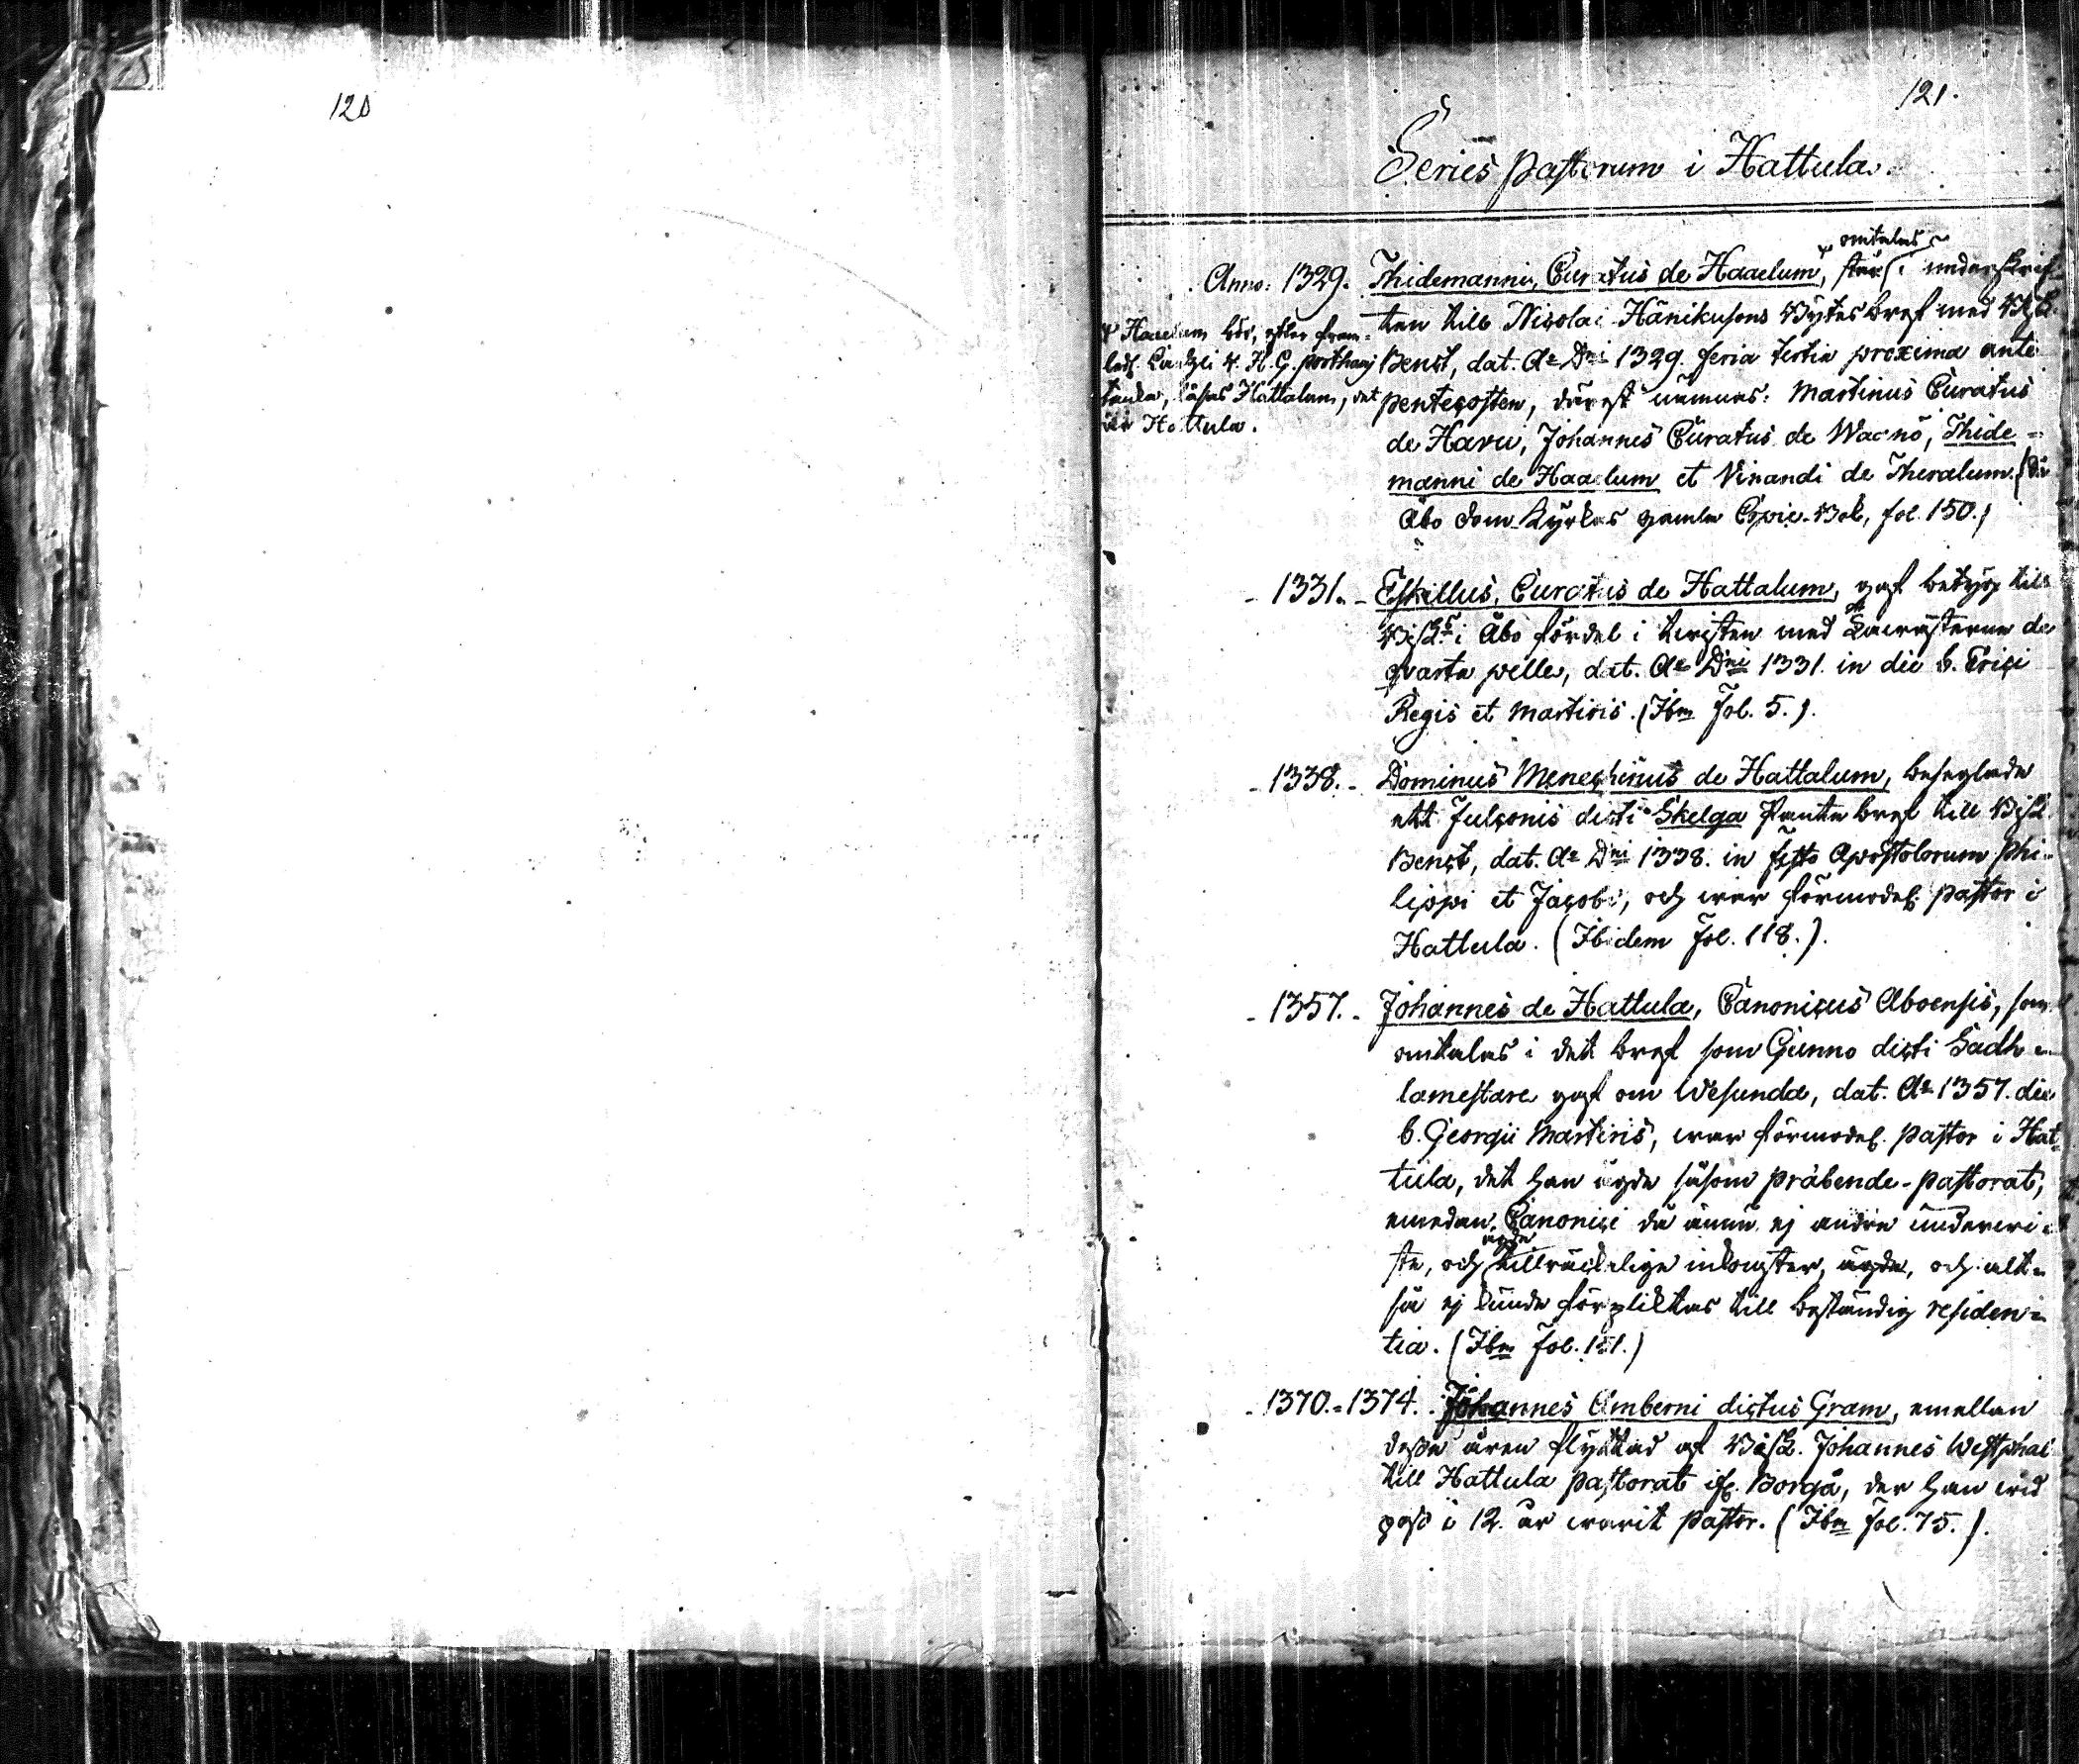 120
121.
Series pastorum i Hattula.
Anno. 1329. Thidemanni, Curatus de Haaelum, står i underskrif-
omtalas
ten till Nicolai Hänikusons Bytes bref med Bisk.
Benct, dat. Ao Dni 1329. feria tertia proxima ante
pentecosten, därest nämnes: Martinus Curatus
de Haru, Johannes Curatus de Wacnö, Thide-
manni de Haaelum et Vinandi de Theralum. (
Åbo Dom-Kyrkas gamla Copie-Bok, fol. 150.)
Haaelum bör, efter fram-
H. G. Porthans
tanke, läsas Hattalum, det
är Hattula.
- 1331. - Eskillus, Curatus de Hattalum, gaf betyg till
Bisk. i Åbo fördel i twisten med Tawasterne de
qvarta pelle, dat. Ao Dni 1331. in die b. Erici
Regis et Martiris. (Ibm Fol. 5.).
- 1338. - Dominus Menechinus de Hattalum, beseglade
ett Fulconis dicti Skelga Pante bref till Bisk.
Benct, dat. Ao Dni 1338. in festo Apostolorum Phi-
lippi et Jacobi, och war förmodel. Pastor i
Hattula. (Ibidem Fol. 118.).
- 1357. - Johannes de Hattula, Canonicus Aboensis, som
omtalas i det bref som Gunno dicti Sadh-
lamestare gaf om Wesunda, dat. Ao 1357. die
b. Georgii Martiris, war förmodel. Pastor i Hat-
tula, det han ägde såsom præbende-pastorat,
emedan Canonici då ännu ej andre underwi-
ägde
ste, och tillräckelige inkomster, ägde, och alt-
så ej kunde förpliktas till beständig residen-
tia. (Ibm Fol. 151.)
- 1370.-1374. Johannes Amberni dictus Gram, emellan
dessa åren flyttad af Bisk. Johannes Westphal
till Hattula pastorat ifr. Borgå, der han wid
pass i 12. år warit Pastor. (Ibm Fol. 75.).